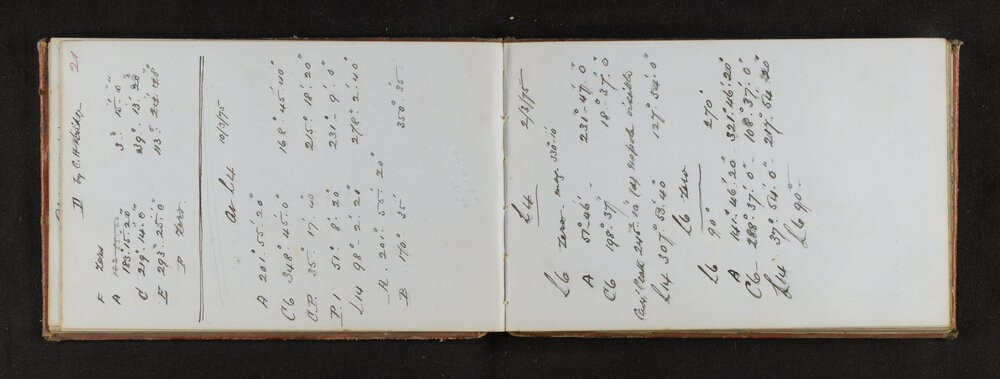 21
II by C. H.
F Zero
A 183°.15'.20" 3°. 15'. 0"
C 219°.14'.0" 39°. 13'. 20"
E 293°.25'.0
P Zero.
At L4 10/3/75
A 201°.55'.20" 168°.45'.40"
C6 348°.45'.0" 215°. 18'. 20"
C.P. 35°. 17'. 40" 231°. 9'. 0"
P.1 51°. 8'. 20" 278°. 2'. 40"
L14 98°- 2'. 20"
A. 201°. 55'. 20"
B. 170°. 35' 350°. 35'
L4 2/3/75
L6 Zero mag. 330°.10'
A 51°.46'- 231°-47'. 0"
C6 198°.37'- 18°. 37'. 0"
245°.
L14 307°. 53'.40" 127°. 54'. 0"
L6 Zero
L6 90° 270°
A 141°. 46'.20" 321°.46'.20"
C6- 288°. 37'. 0"- 108°. 37'. 0"
L14 37°. 54'. 0"- 217°. 54'.
L6 90°-